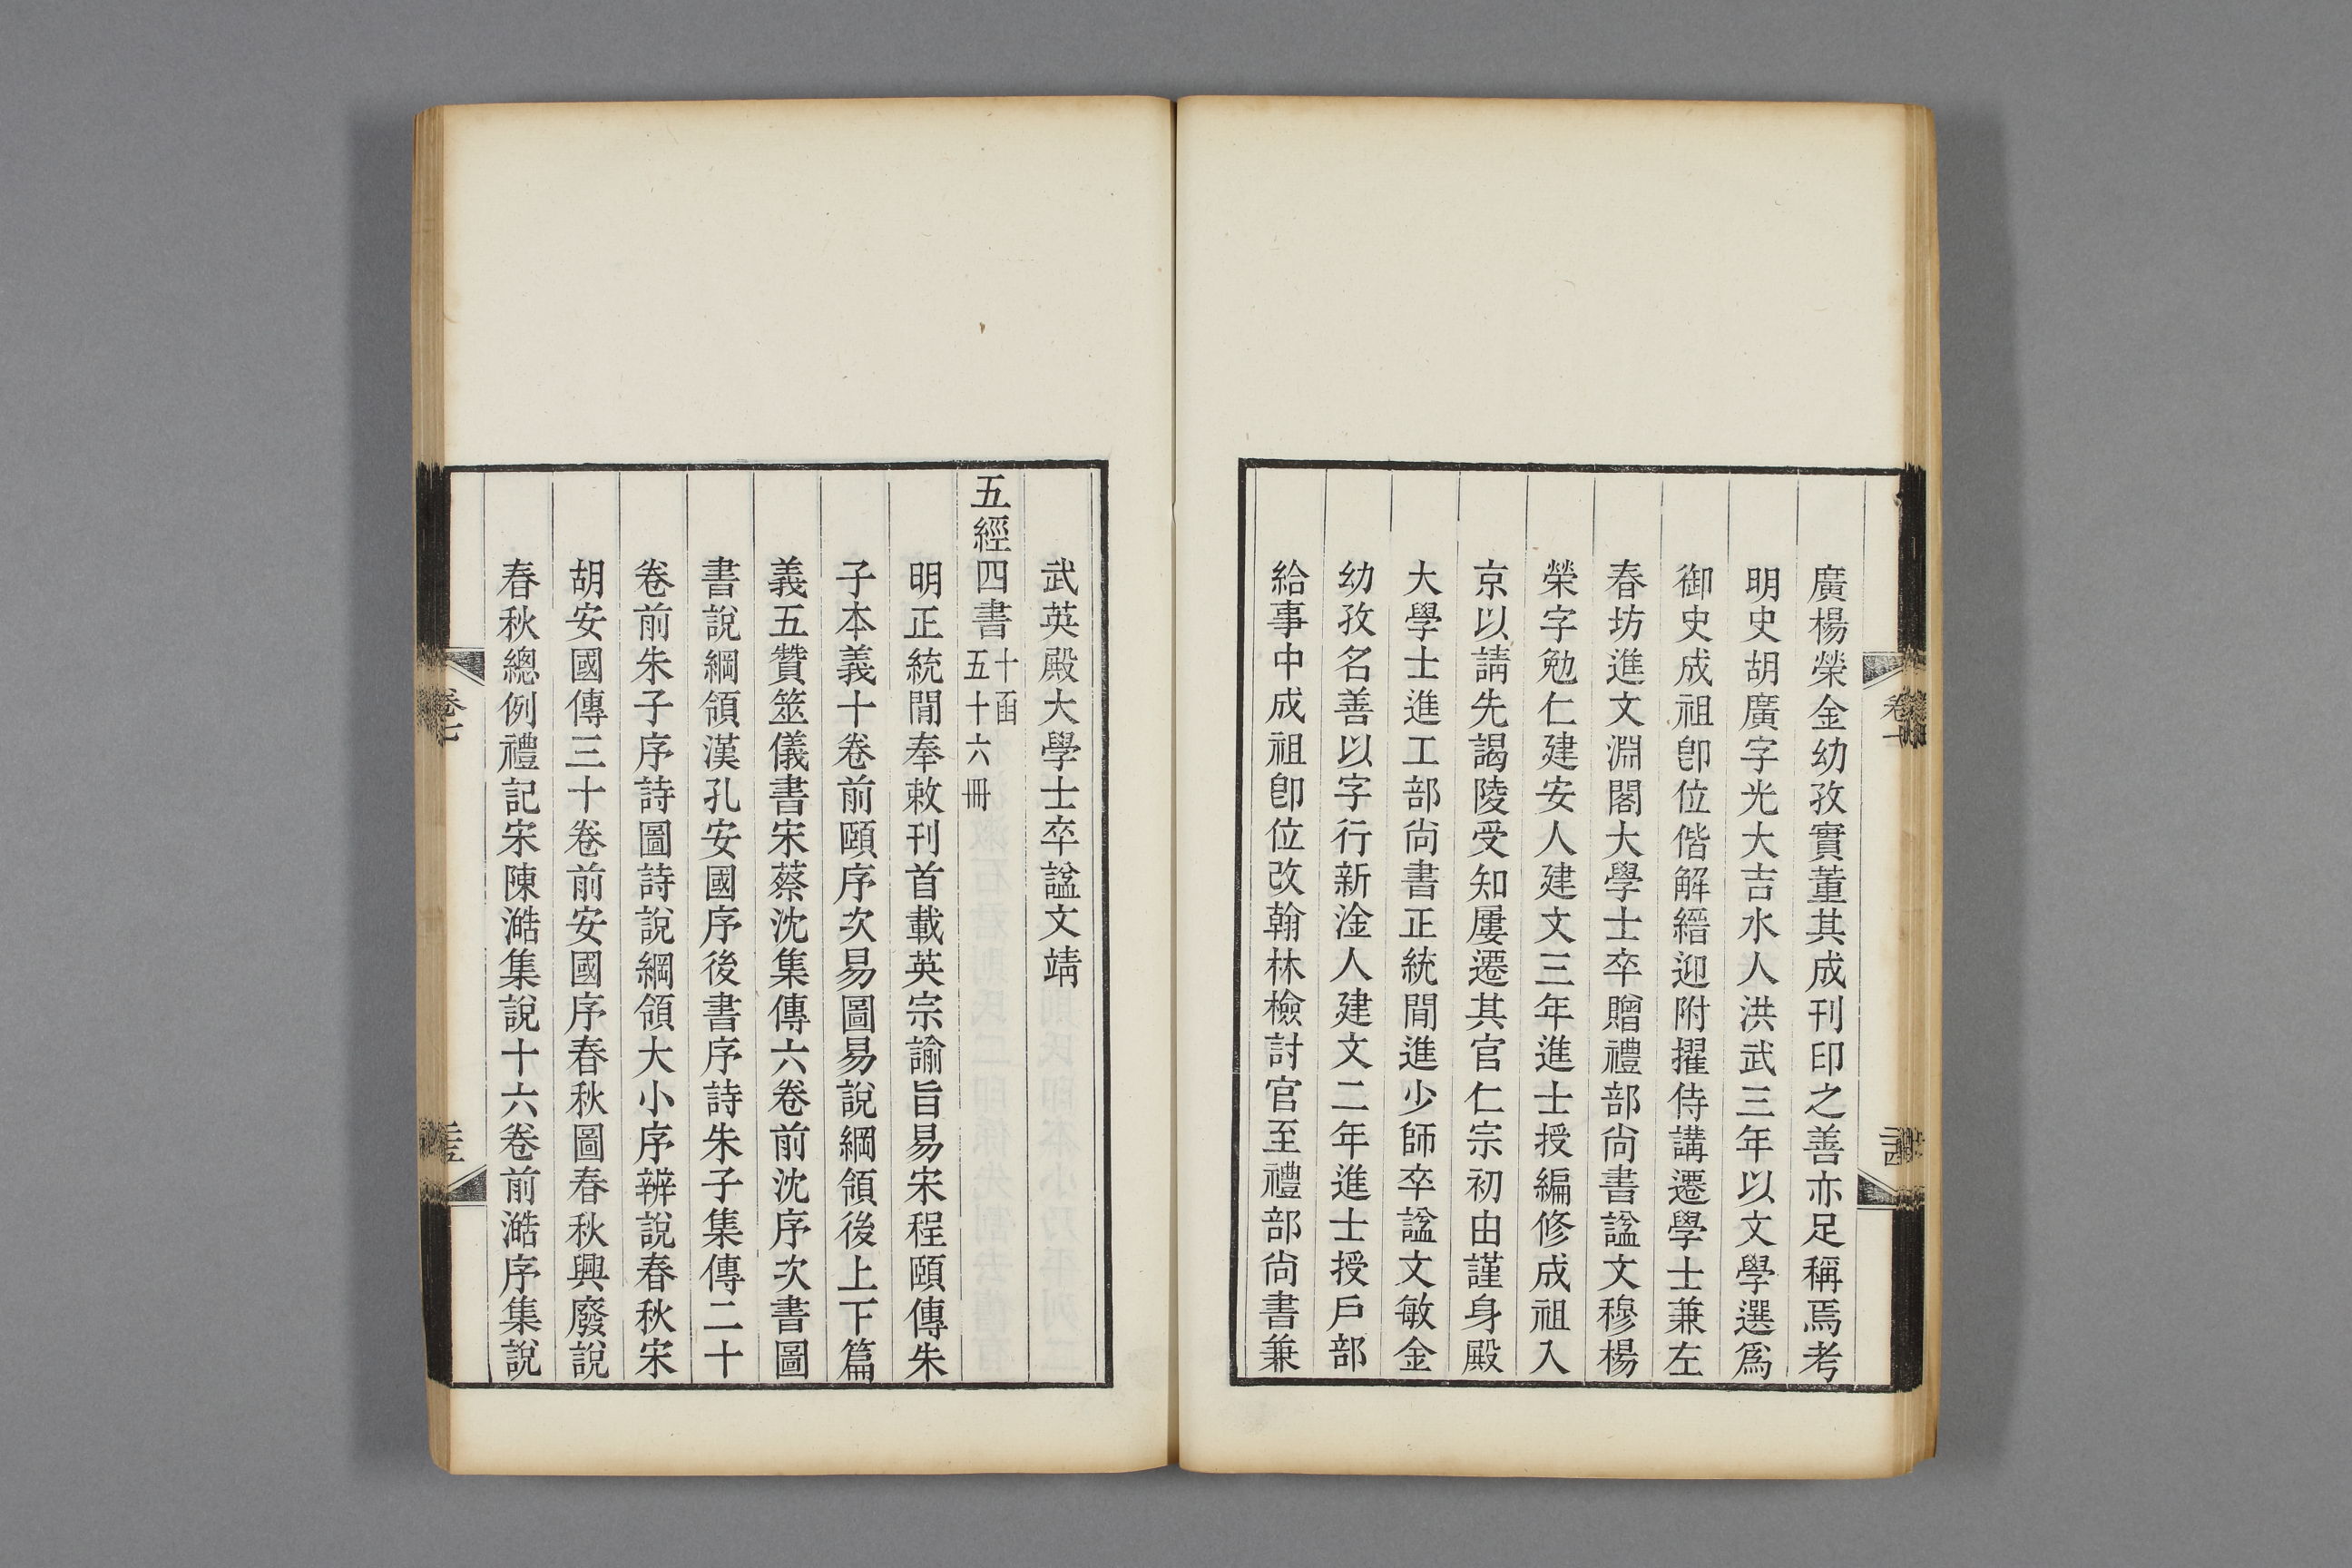 廣楊榮金幼孜實董其成刊印之善亦足稱焉考
明史胡廣字光大吉水人洪武三年以文學選爲
御史成祖卽位偕解縉迎附擢侍講遷學士兼左
春坊進文淵閣大學士卒贈禮部尙書諡文穆楊
榮字勉仁建安人建文三年進士授編修成祖入
京以請先謁陵受知屢遷其官仁宗初由謹身殿
大學士進工部尙書正統閒進少師卒諡文敏金
幼孜名善以字行新淦人建文二年進士授戶部
給事中成祖卽位改翰林檢討官至禮部尙書兼
武英殿大學士卒諡文靖
五經四書十函五十六冊
明正統閒奉敕刊首載英宗諭旨易宋程頤傳朱
子本義十卷前頤序次易圖易說綱領後上下篇
義五贊筮儀書宋蔡沈集傳六卷前沈序次書圖
書說綱領漢孔安國序後書序詩朱子集傳二十
卷前朱子序詩圖詩說綱領大小序辨說春秋宋
胡安國傳三十卷前安國序春秋圖春秋興廢說
春秋總例禮記宋陳澔集說十六卷前澔序集說
卷七